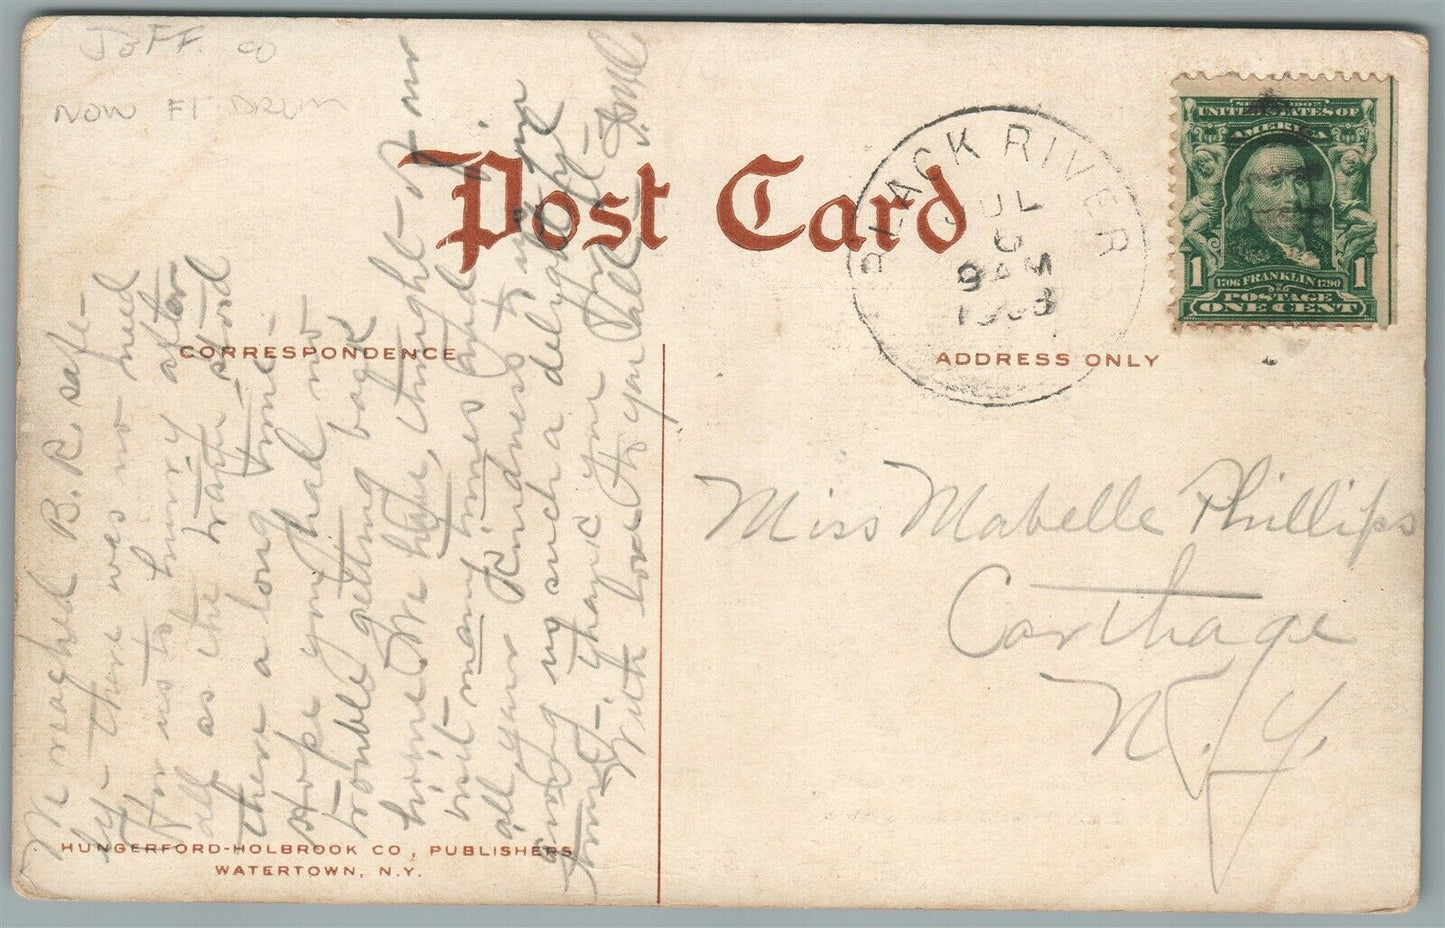 JEFF. CO
NOW FT DRUM
Post Card
CORRESPONDENCE
ADDRESS ONLY
BLACK RIVER
JUL
6
9 AM
1908
UNITED STATES OF
AMERICA
1 1
1706 FRANKLIN 1790
POSTAGE
ONE CENT
We reached B. R. safe-
ly - there was no need
for us to hurry after
all as the train stood
there a long time -
Hope you had no
trouble getting back
home. We have thought of our
visit many times and
all your kindness to us in
giving us such a delightful
time - thank you
With love to you
Miss Mabelle Phillips
Carthage
N. Y.
HUNGERFORD-HOLBROOK CO., PUBLISHERS
WATERTOWN, N.Y.